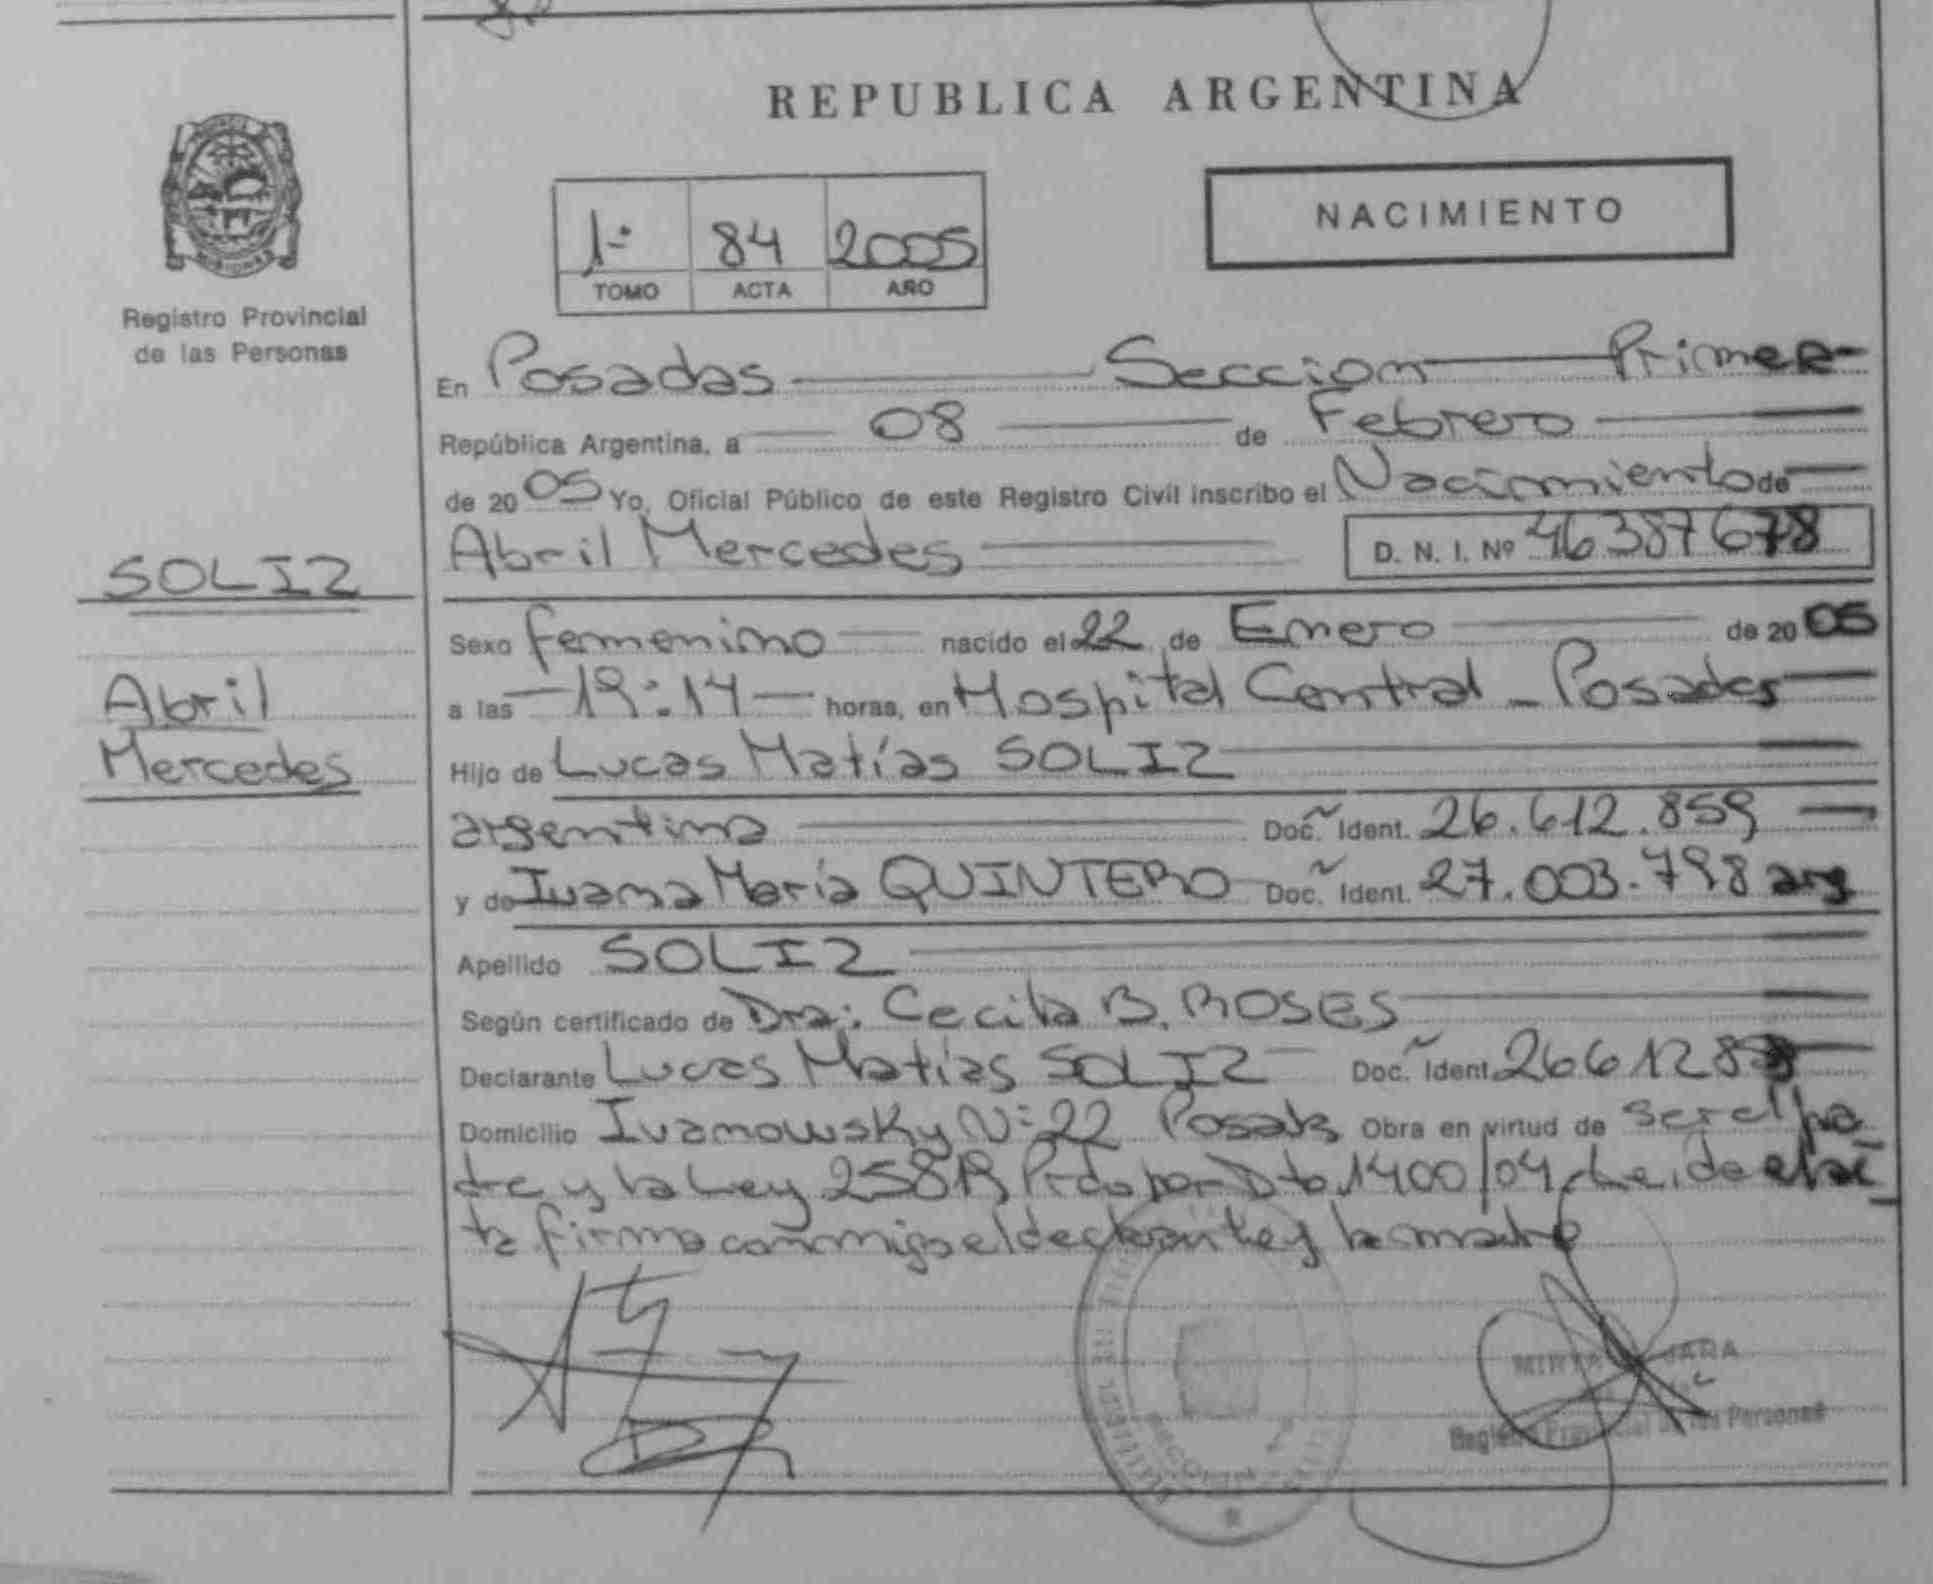 REPUBLICA ARGENTINA
NACIMIENTO
1º 84 2005
TOMO ACTA AÑO
Registro Provincial
de las Personas
En Posadas Seccion Primer
República Argentina, a 08 de Febrero
de 2005 Yo, Oficial Público de este Registro Civil inscribo el Nacimiento de
Abril Mercedes D. N. I. Nº 46387678
SOLIZ
Abril
Mercedes
Sexo femenino nacido el 22 de Enero de 2005
a las 19:14 horas, en Hospital Central - Posadas
Hijo de Lucas Matías SOLIZ
argentina Doc. Ident. 26.612.859
y de Ivana María QUINTERO Doc. Ident. 27.003.798 arg
Apellido SOLIZ
Según certificado de Dra: Cecilia B. ROSES
Declarante Lucas Matías SOLIZ Doc. Ident.
Domicilio Ivanowsky Nº 22 Posadas Obra en virtud de ser el pa
dre y la Ley por Dto 1400/04, Leida el ac
ta firma conmigo el declarante y la madre
MIRTA JARA
Registro Provincial de las Personas